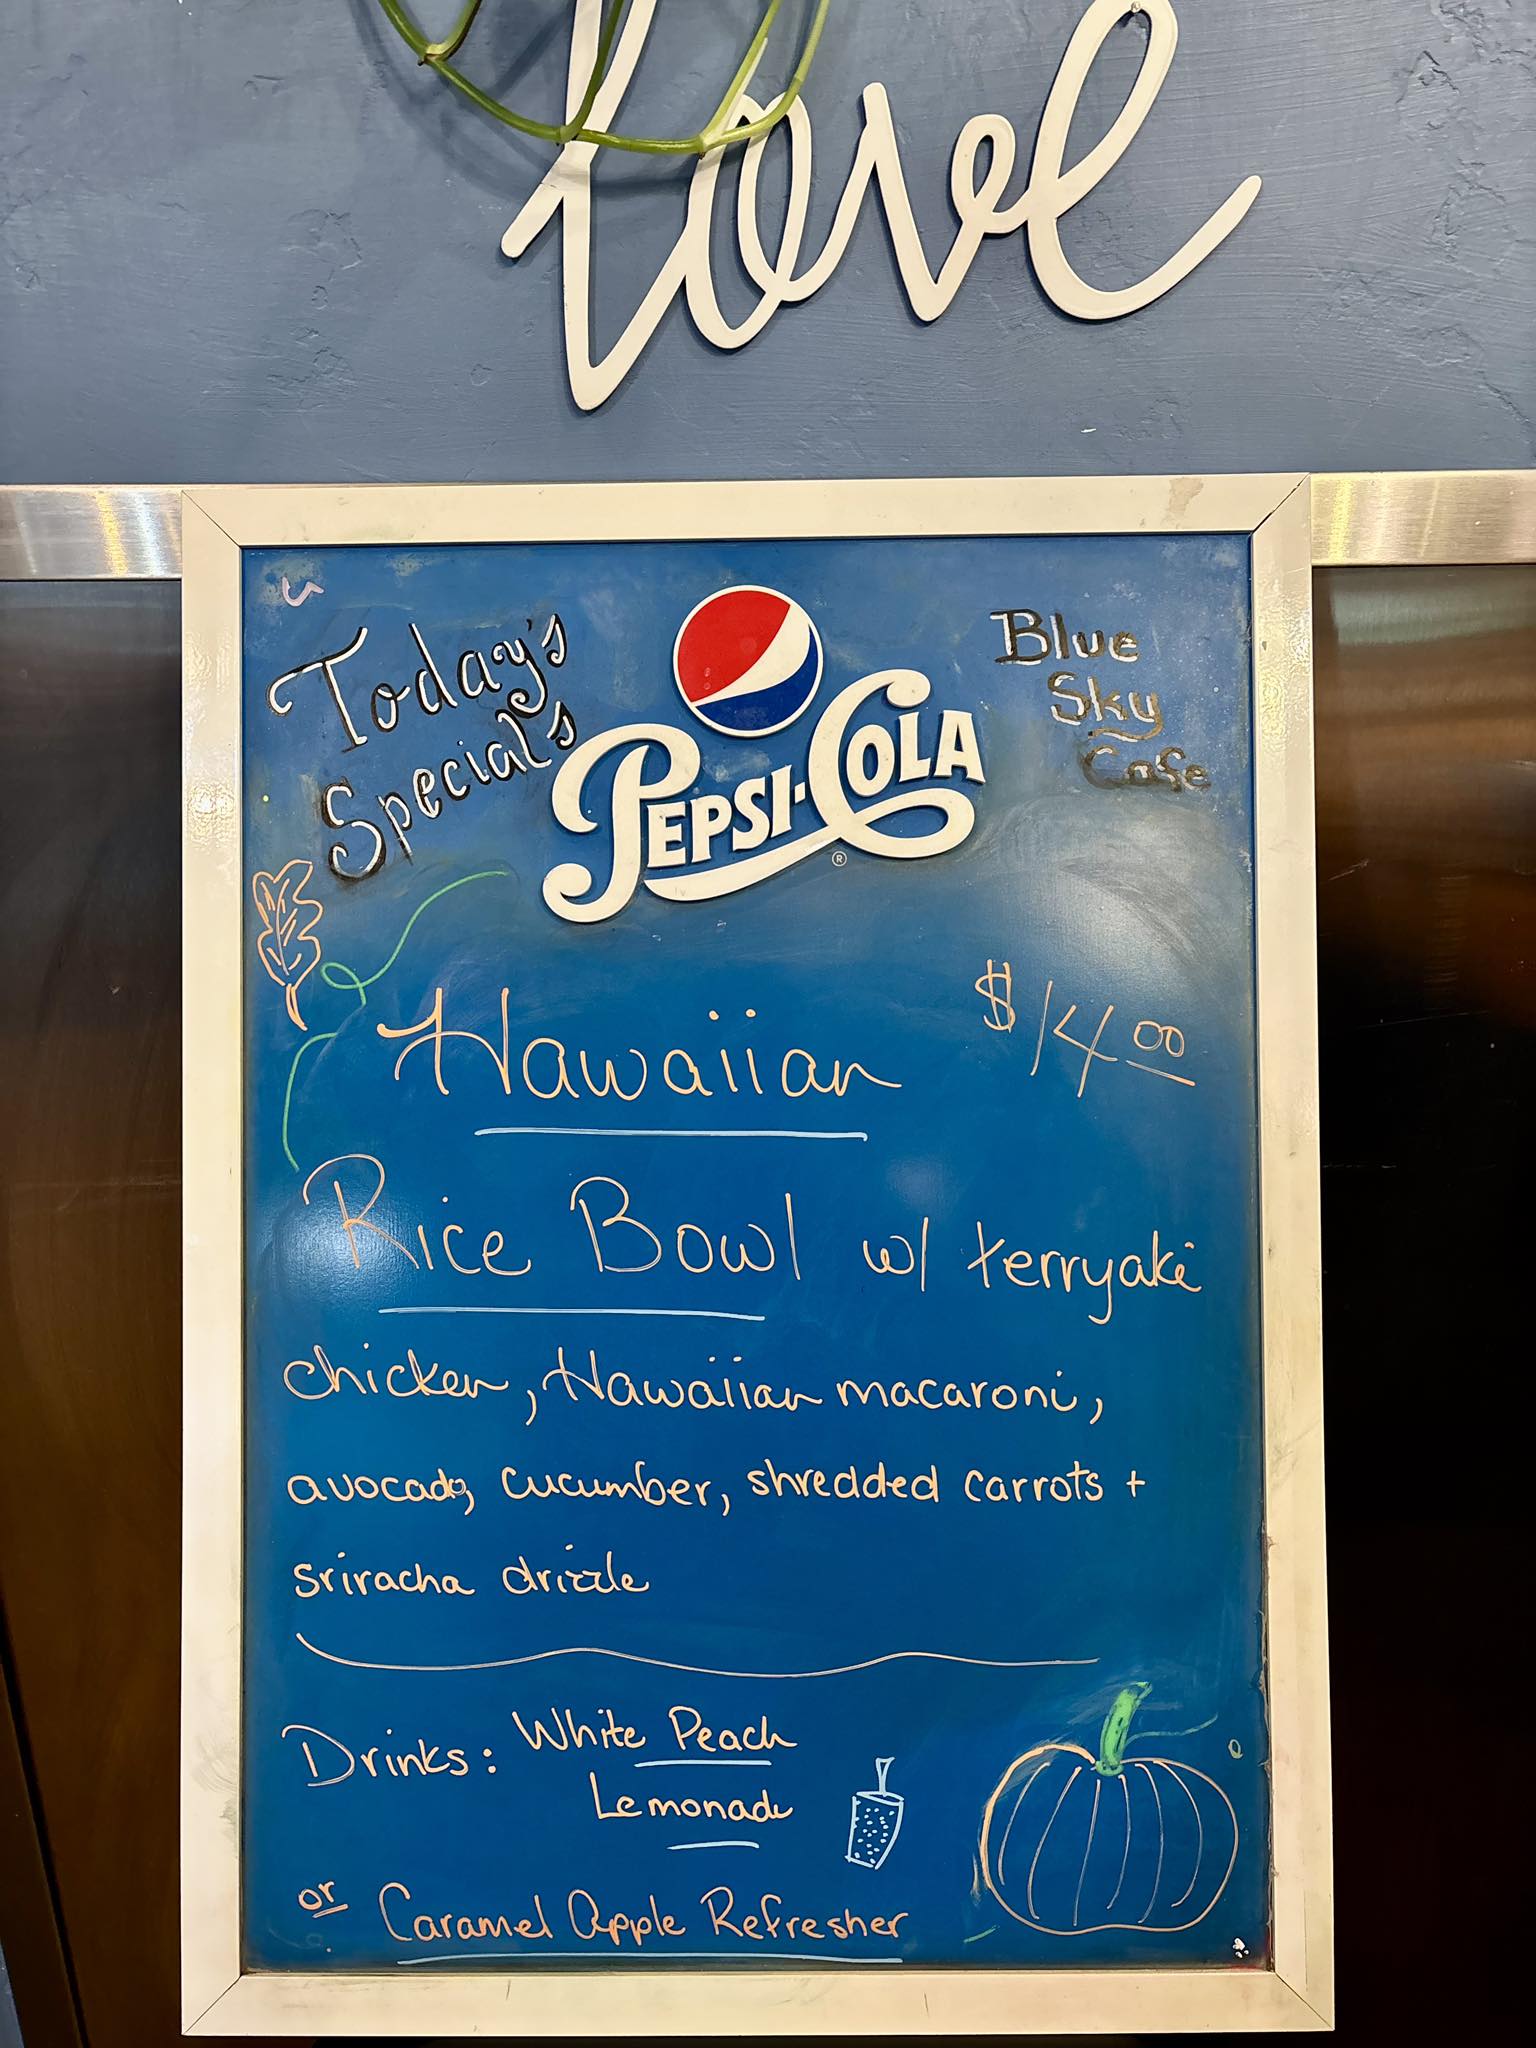 love
Today's
Special's
PEPSI-COLA
®
Blue
Sky
Cafe
Hawaiian $14.00
Rice Bowl w/ terryaki
chicken, Hawaiian macaroni,
avocado, cucumber, shredded carrots +
sriracha drizzle
Drinks: White Peach
Lemonade
or Caramel Apple Refresher